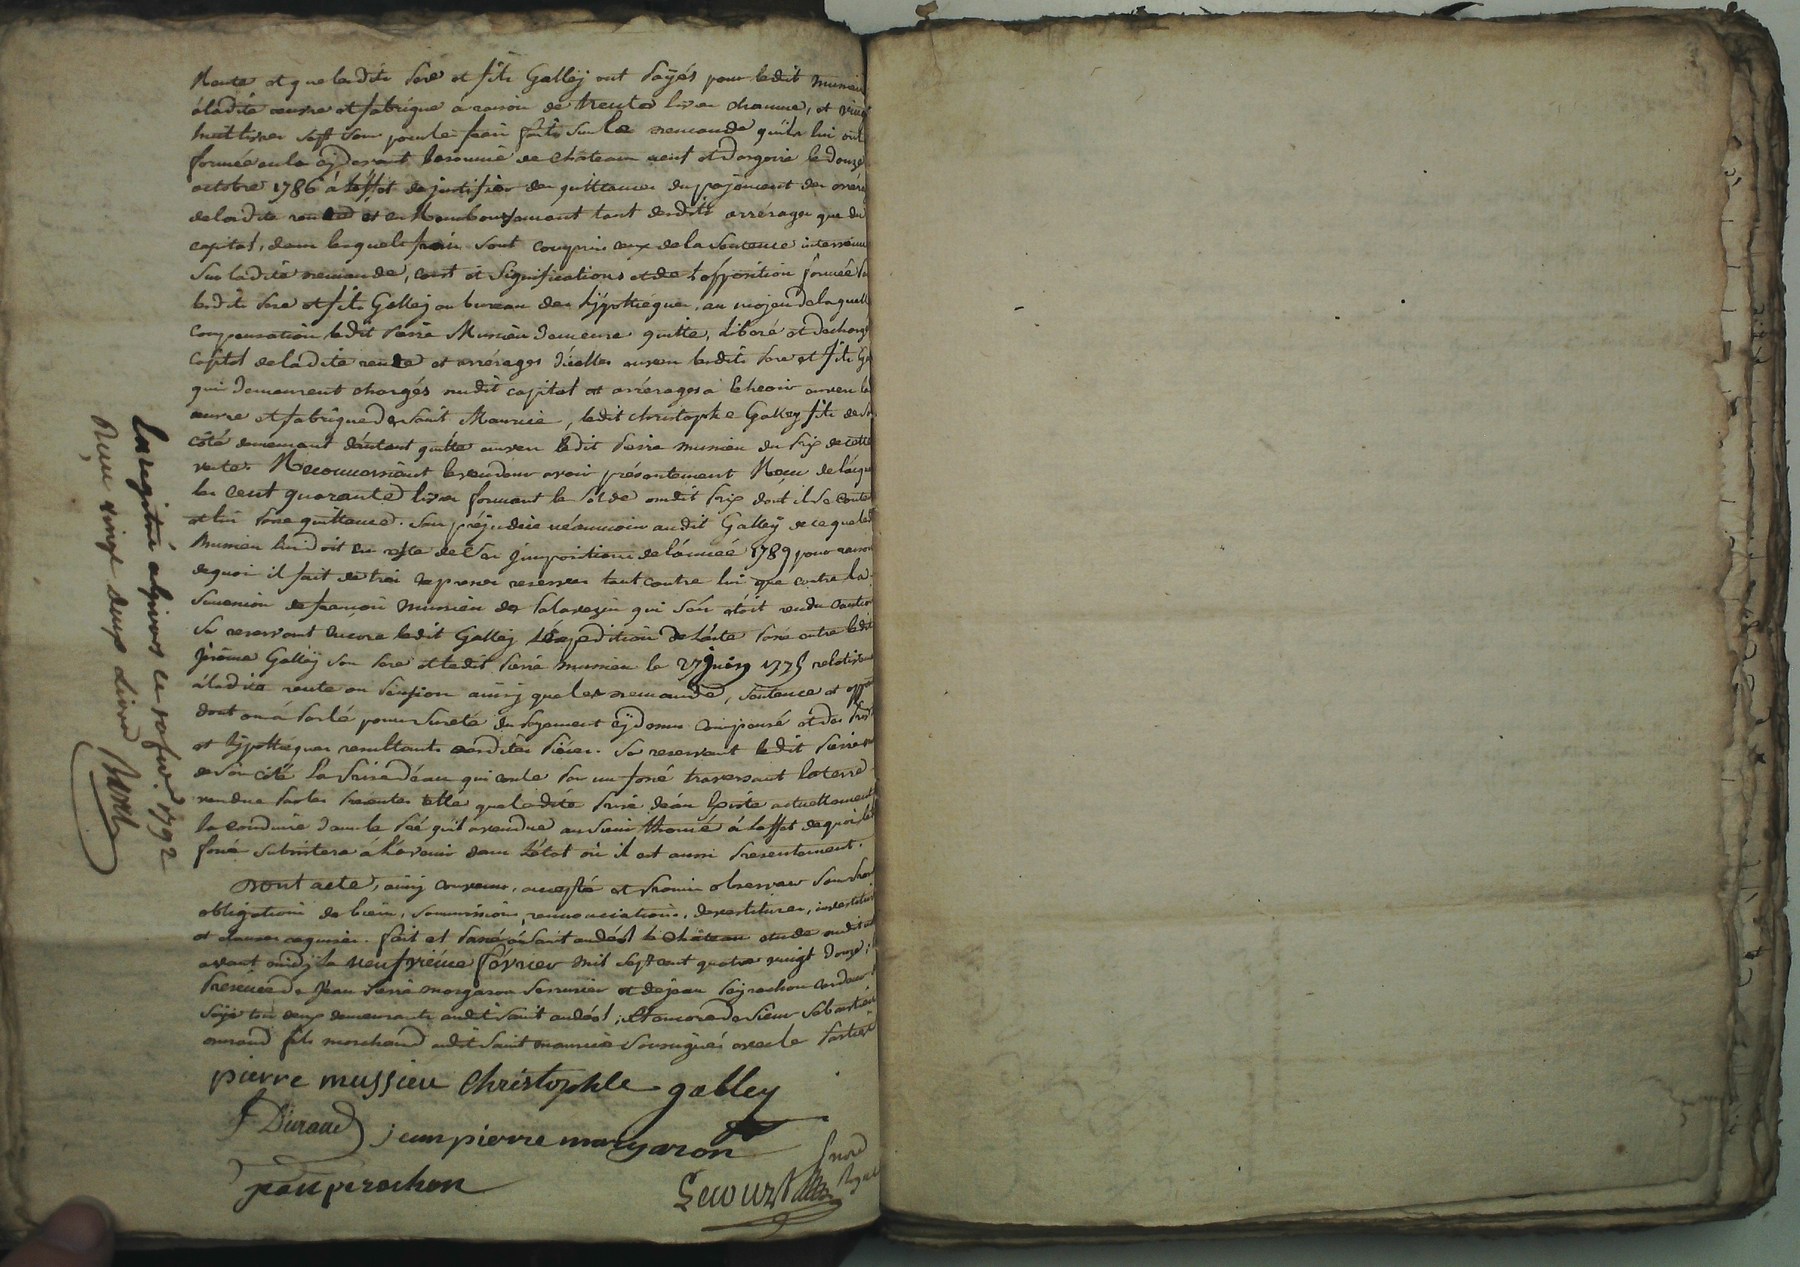 Rente et que lesdits Pere et fils Galley ont payés pour ledit mussieu
à ladite œuvre et fabrique a raison de trente livres chacune, et vingt
huit livres sept sous pour les frais faits sur la demande qu'ils lui ont
formée en la cydevant baronnie de Chateau neuf et dargoire le douze
octobre 1786 à l'effet de justifier des quittances du payement des arrér
de ladite rente et en Remboursement tant desdits arrérages que du
capital, dans lesquels frais sont compris ceux de la sentence intervenue
sur ladite demande, cout et significations et de l'opposition formée par
lesdits Pere et fils Galley au bureau des hypotheques, au moyen de laquelle
compensation ledit Pierre Mussieu demeure quitte, liberé et dechargé
capital de ladite rente et arrérages d'icelles envers lesdits Pere et fils Ga
qui demeurent chargés dudit capital et arrerages à echeoir envers la
œuvre et fabrique de Saint Maurice, ledit christophe Galley fils de son
côté demeurant d'autant quitte envers ledit Pierre mussieu du Prix de cette
vente. Reconnoissant le vendeur avoir présentement Recu de l'acque
les cent quarante livres formant le solde dudit Prix dont il se contente
et lui Passe quittance. Sans préjudice néanmoins audit Galley de ce que led
Mussieu lui doit du reste de ses impositions de l'année 1789 pour raison
de quoi il fait de tres expresses reserves tant contre lui que contre la
succession de francois Mussieu de qui s'en étoit rendu caution
Se reservant encore ledit Galley l'expedition de l'acte Passé entre ledit
Jérôme Galley son Pere et ledit Pierre mussieu le 27 juin 1775 relative
à ladite rente ou Pension ainsy que les demande, sentence et oppo
dont on a Parlé pour sureté du Payement cydessus compensé et des
et hypotheques resultants desdites Pieces. Se reservant ledit Pierre
de son côté la Prise d'eau qui coule Par un fossé traversant la terre
vendue Par les Présentes telle que ladite Prise d'eau existe actuellement
la conduire dans le Pré qu'il a vendu au sieur thomé à l'effet de quoi led
fossé subsistera à l'avenir dans l'état où il est aussi Presentement.
Dont acte, ainsy convenu, accepté et Promis observer sous
obligations de biens, soumissions, renonciations, devestitures, investitures
et clauses requises. fait et Passé à Saint andéol le Château etude dudit
avant midy le neufvième février mil sept cent quatre vingt douze;
Présence de Jean Pierre margaron serrurier et de jean Peyrachon
tous deux demeurants audit Saint andéol; et encore de Sieur Sébastien
durand fils marchand audit Saint maurice soussignés avec les Parties
pierre mussieu Christophle galley
Durand jean pierre margaron
jean perachon
enregistré à givors ce 10 fev. 1792
Reçu vingt deux livres